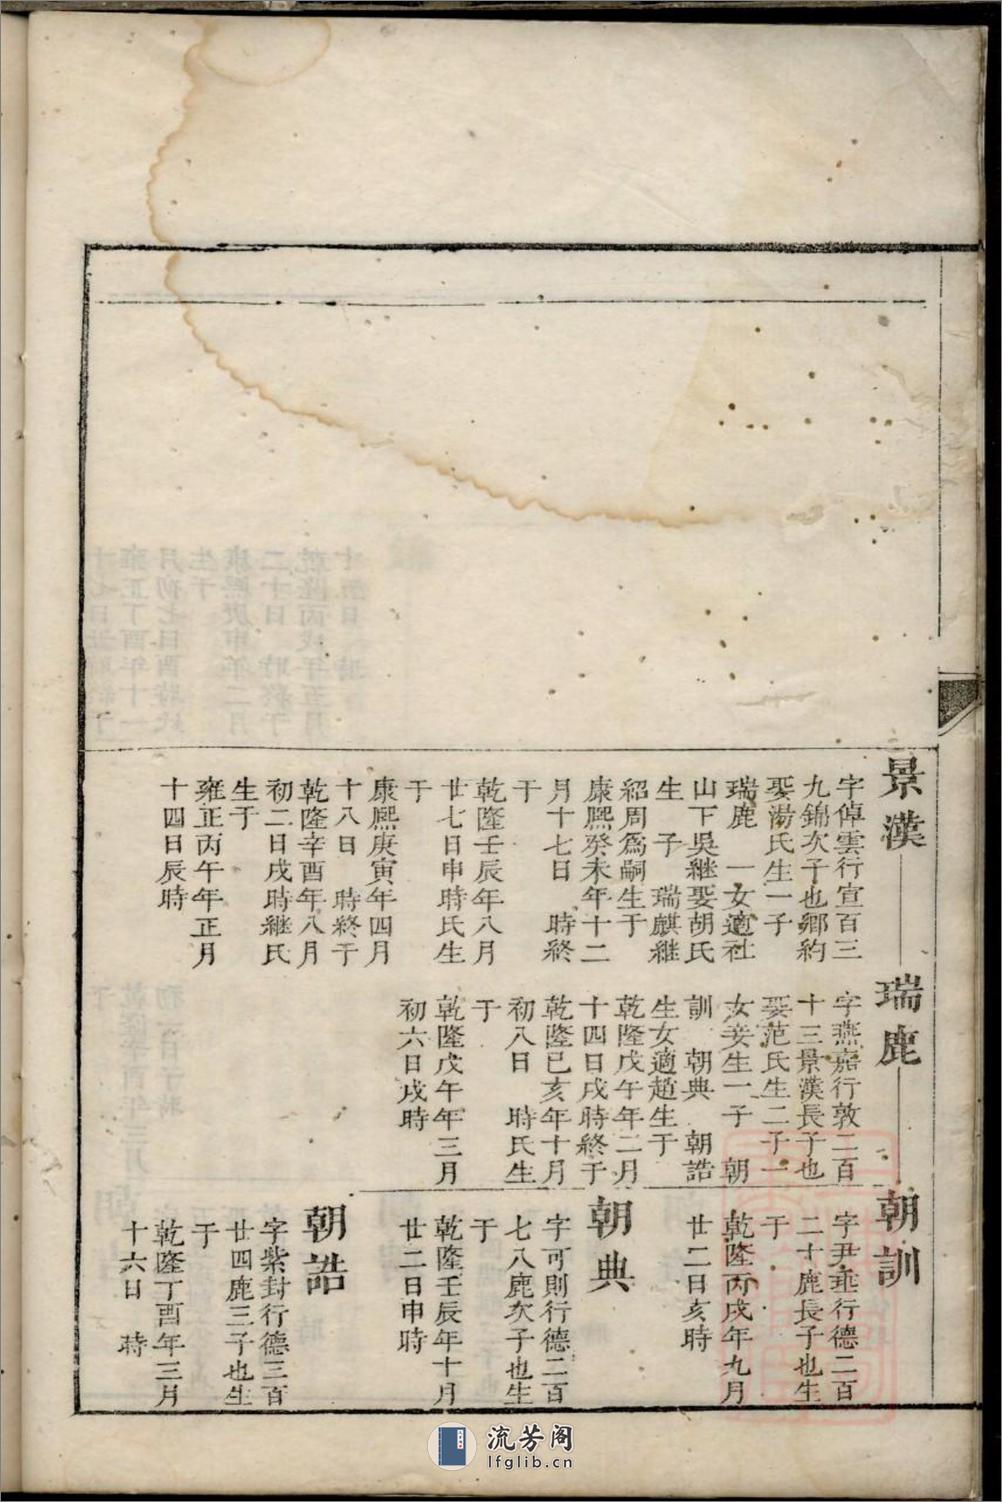 景漢
字倬雲行宣百三
九錦次子也鄉約
娶湯氏生一子
瑞鹿　一女適社
山下吳継娶胡氏
生　子　瑞麒継
紹周爲嗣生于
康熙癸未年十二
月十七日　時終
于
乾隆壬辰年八月
廿七日申時氏生
于
康熙庚寅年四月
十八日　時終于
乾隆辛酉年八月
初二日戌時継氏
生于
雍正丙午年正月
十四日辰時
瑞鹿
字燕嘉行敦二百
十三景漢長子也
娶范氏生二子一
女妾生一子　朝
訓　朝典　朝誥
生女適趙生于
乾隆戊午年二月
十四日戌時終于
乾隆己亥年十月
初八日　時氏生
于
乾隆戊午年三月
初六日戌時
朝訓
字尹垂行德二百
二十鹿長子也生
于
乾隆丙戌年九月
廿二日亥時
朝典
字可則行德二百
七八鹿次子也生
于
乾隆壬辰年十月
廿二日申時
朝誥
字紫封行德三百
廿四鹿三子也生
于
乾隆丁酉年三月
十六日　時
流芳阁
lfglib.cn